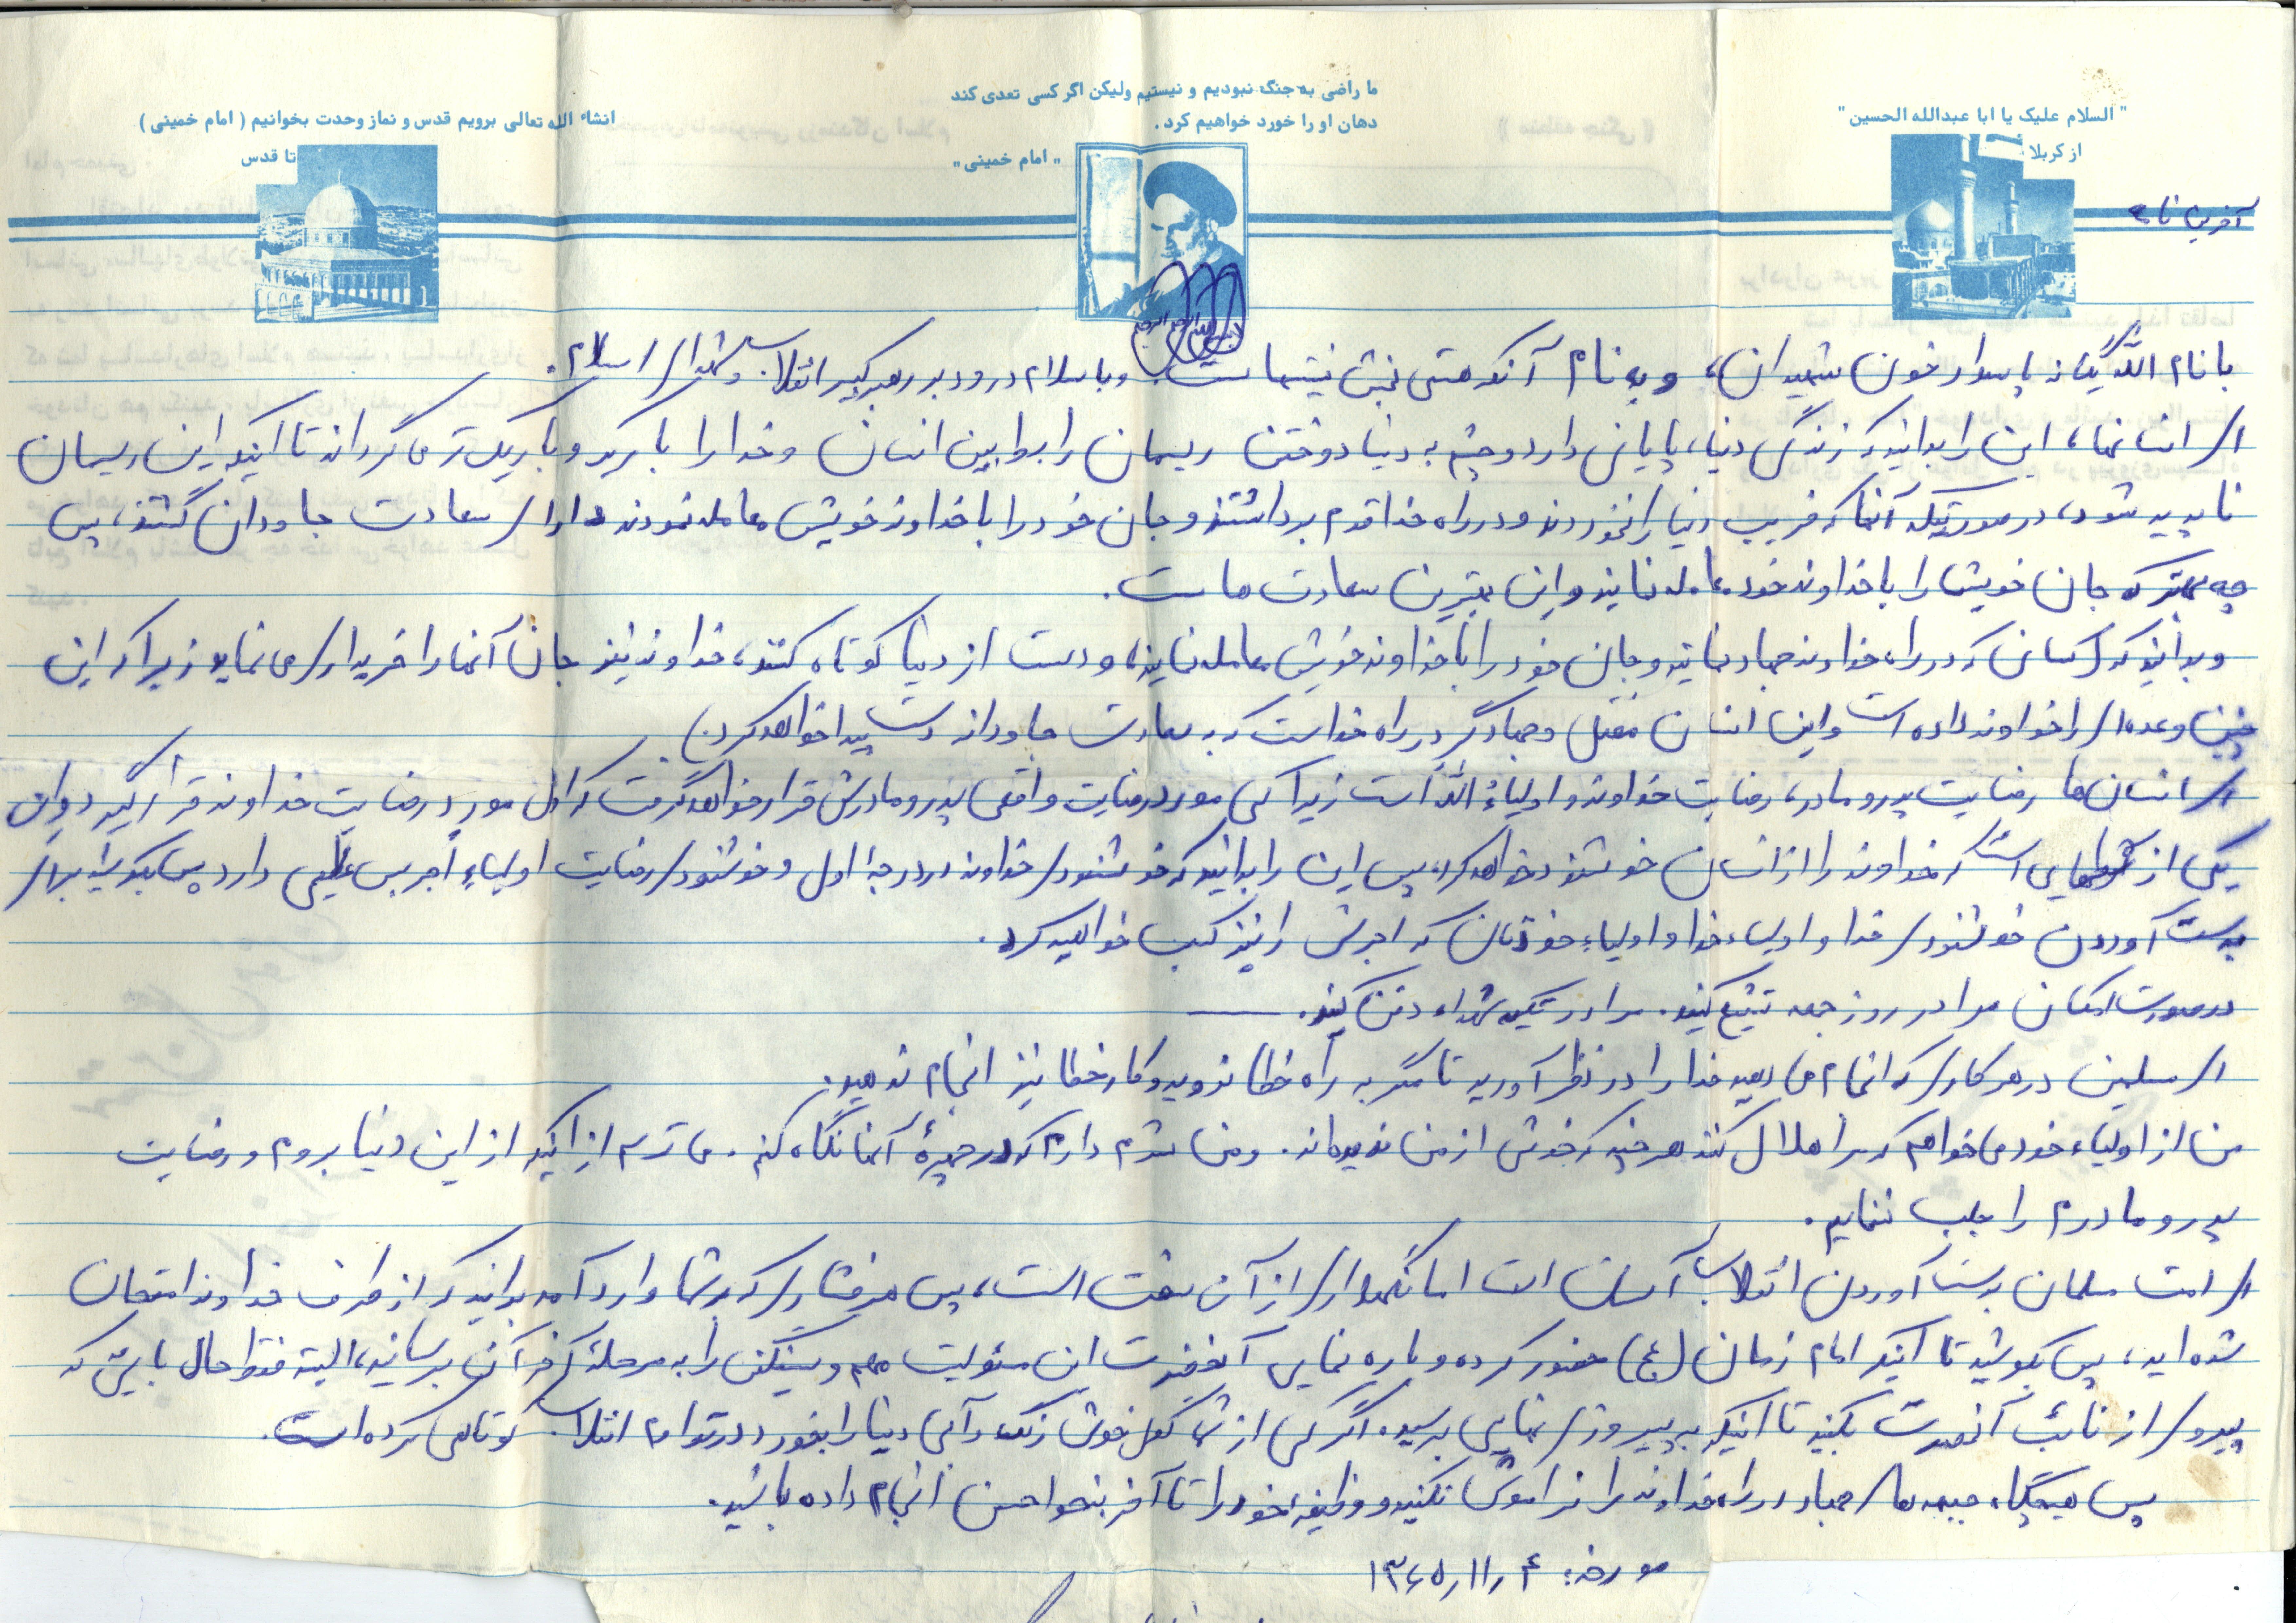 "السلام علیک یا ابا عبدالله الحسین"
از کربلا
ما راضی به جنگ نبودیم و نیستیم ولیکن اگر کسی تعدی کند
دهان او را خورد خواهیم کرد.
"امام خمینی"
انشاء الله تعالی برویم قدس و نماز وحدت بخوانیم (امام خمینی)
تا قدس
آخرین نامه
بسم الله الرحمن الرحیم
با نام الله یگانه پاسدار خون شهیدان، و به نام آنکه هستی بخش نیستیهاست. و با سلام و درود بر رهبر کبیر انقلاب و شهدای اسلام.
ای انسانها، این را بدانید که زندگی دنیا، پایانی دارد و چشم به دنیا دوختن ریسمان رابط بین انسان و خدا را باریک و باریک تر می گرداند تا اینکه این ریسمان
ناپدید شود، در صورتیکه آنها که فریب دنیا را نخوردند و در راه خدا قدم برداشتند و جان خود را با خداوند خویش معامله نمودند دارای سعادت جاودان گشتند، پس
چه بهتر که جان خویش را با خداوند خود معامله نمائید و این بهترین سعادت هاست.
و بدانید که کسانی که در راه خداوند جهاد نمایند و جان خود را با خداوند خویش معامله نمایند، و دست از دنیا کوتاه کنند، خداوند نیز جان آنها را خریداری می نماید زیرا که این
چنین وعده ای را خداوند داده است و این انسان و جهادگر در راه خداست که به سعادت جاودانه دست پیدا خواهد کرد.
ای انسان ها رضایت پدر و مادر، رضایت خداوند و اولیاء الله است زیرا کسی مورد رضایت واقعی پدر و مادرش قرار خواهد گرفت که اول مورد رضایت خداوند قرار گیرد و این
یکی از است که خداوند را از انسان خوشنود خواهد کرد، پس این را بدانید که خوشنودی خداوند در درجه اول و خوشنودی رضایت اولیاء اجر بس عظیمی دارد پس بکوشید برای
بدست آوردن خوشنودی خدا و اولیاء خدا و اولیاء خودتان که اجرش را نیز کسب خواهید کرد.
در صورت امکان مرا در روز جمعه تشییع کنید. مرا در تکیه شهداء دفن کنید.
ای مسلمین در هر کاری که انجام می دهید خدا را در نظر آورید تا مگر به راه خطا نروید و کار خطا نیز انجام ندهید.
من از اولیاء خود می خواهم که مرا حلال کنند هر چند که خوشی از من ندیده اند. و من شرم دارم که در چهرۀ آنها نگاه کنم. می ترسم از اینکه از این دنیا بروم و رضایت
پدر و مادرم را جلب ننمایم.
ای امت مسلمان بدست آوردن انقلاب آسان است اما نگهداری از آن سخت است، پس هر فشاری که بر شما وارد آمد بدانید که از طرف خداوند امتحان
شده اید، پس بکوشید تا اینکه امام زمان (عج) حضور کرده و با رهنمایی آنحضرت این مسئولیت مهم و سنگین را به مرحلۀ آخر آن برسانید، البته فقط حال بایستی که
پیروی از نائب آنحضرت بکنید تا اینکه به پیروزی نهایی برسید. اگر کسی از شما گول خوش رنگ و آبی دنیا را بخورد در تداوم انقلاب کوتاهی کرده است.
پس هیچگاه جبهه های جهاد در راه خداوند را فراموش نکنید و وظیفه خود را تا آخر بنحو احسن انجام داده باشید.
مورخه: ۱۳۶۵/۱۱/۴